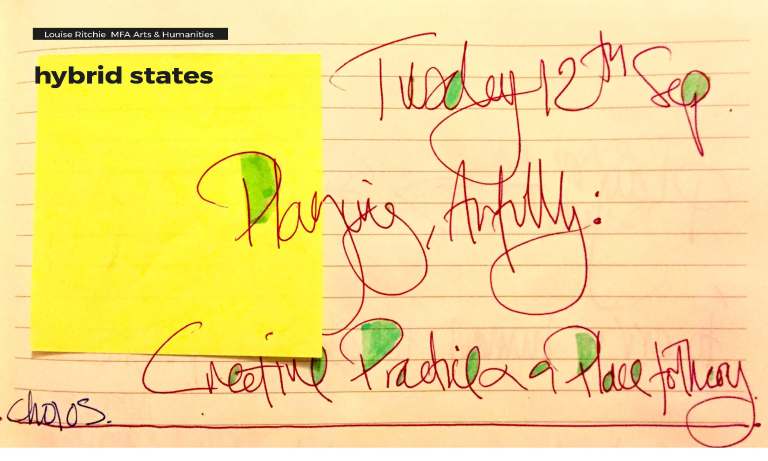 Louise Ritchie MFA Arts & Humanities
hybrid states
Tuesday 12th Sep.
Planning, Artfully:
Creative Practice & a Place for Theory